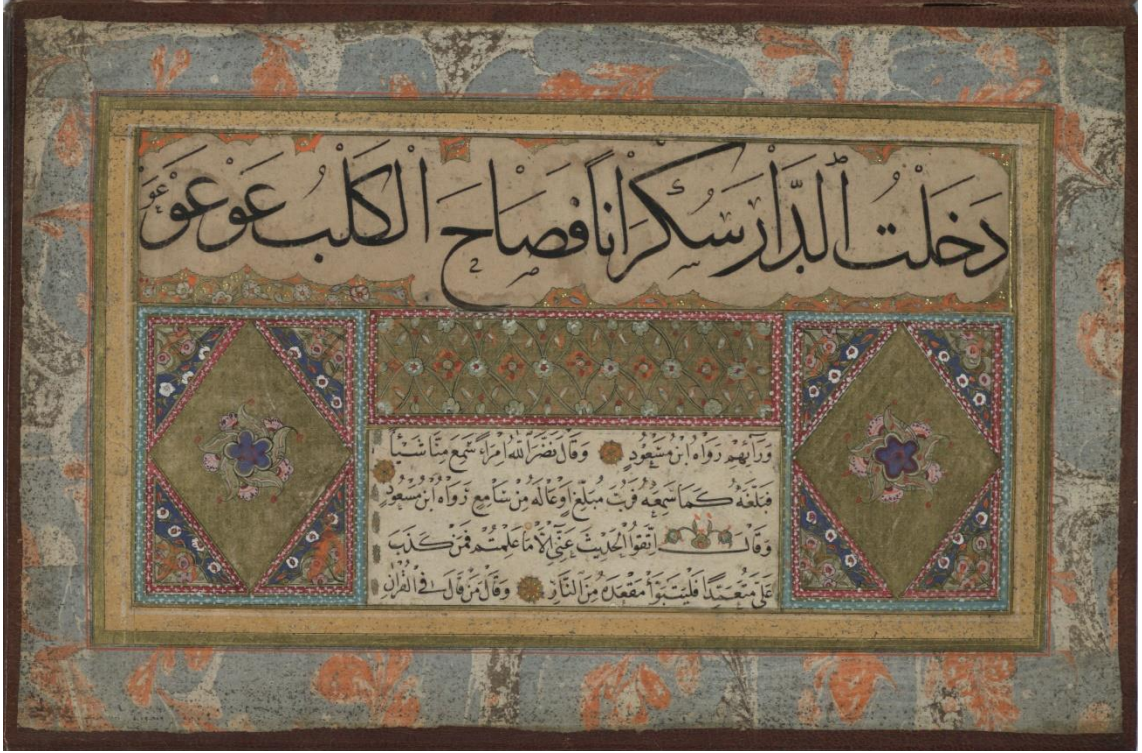 دَخَلْتُ ٱلدَّارَ سُكْرَانًا فَصَاحَ الْكَلْبُ عَوْ عَوْ عَوْ
وَرَآئِهِمْ رَوَاهُ ابْنُ مَسْعُودٍ وَقَالَ نَضَّرَ اللهُ امْرَاءً سَمِعَ مِنَّا شَيْئًا
فَبَلَّغَهُ كَمَا سَمِعَهُ فَرُبَّ مُبَلَّغٍ اَوْعَالَهُ مِنْ سَامِعٍ رَوَاهُ ابْنُ مَسْعُودٍ
وَقَالَ اتَّقُوا الْحَدِيثَ عَنِّي اِلَّا مَا عَلِمْتُمْ فَمَنْ كَذَبَ
عَلَيَّ مُتَعَمِّدًا فَلْيَتَبَوَّأْ مَقْعَدَهُ مِنَ النَّارِ وَقَالَ مَنْ قَالَ فِي الْقُرْاٰنِ